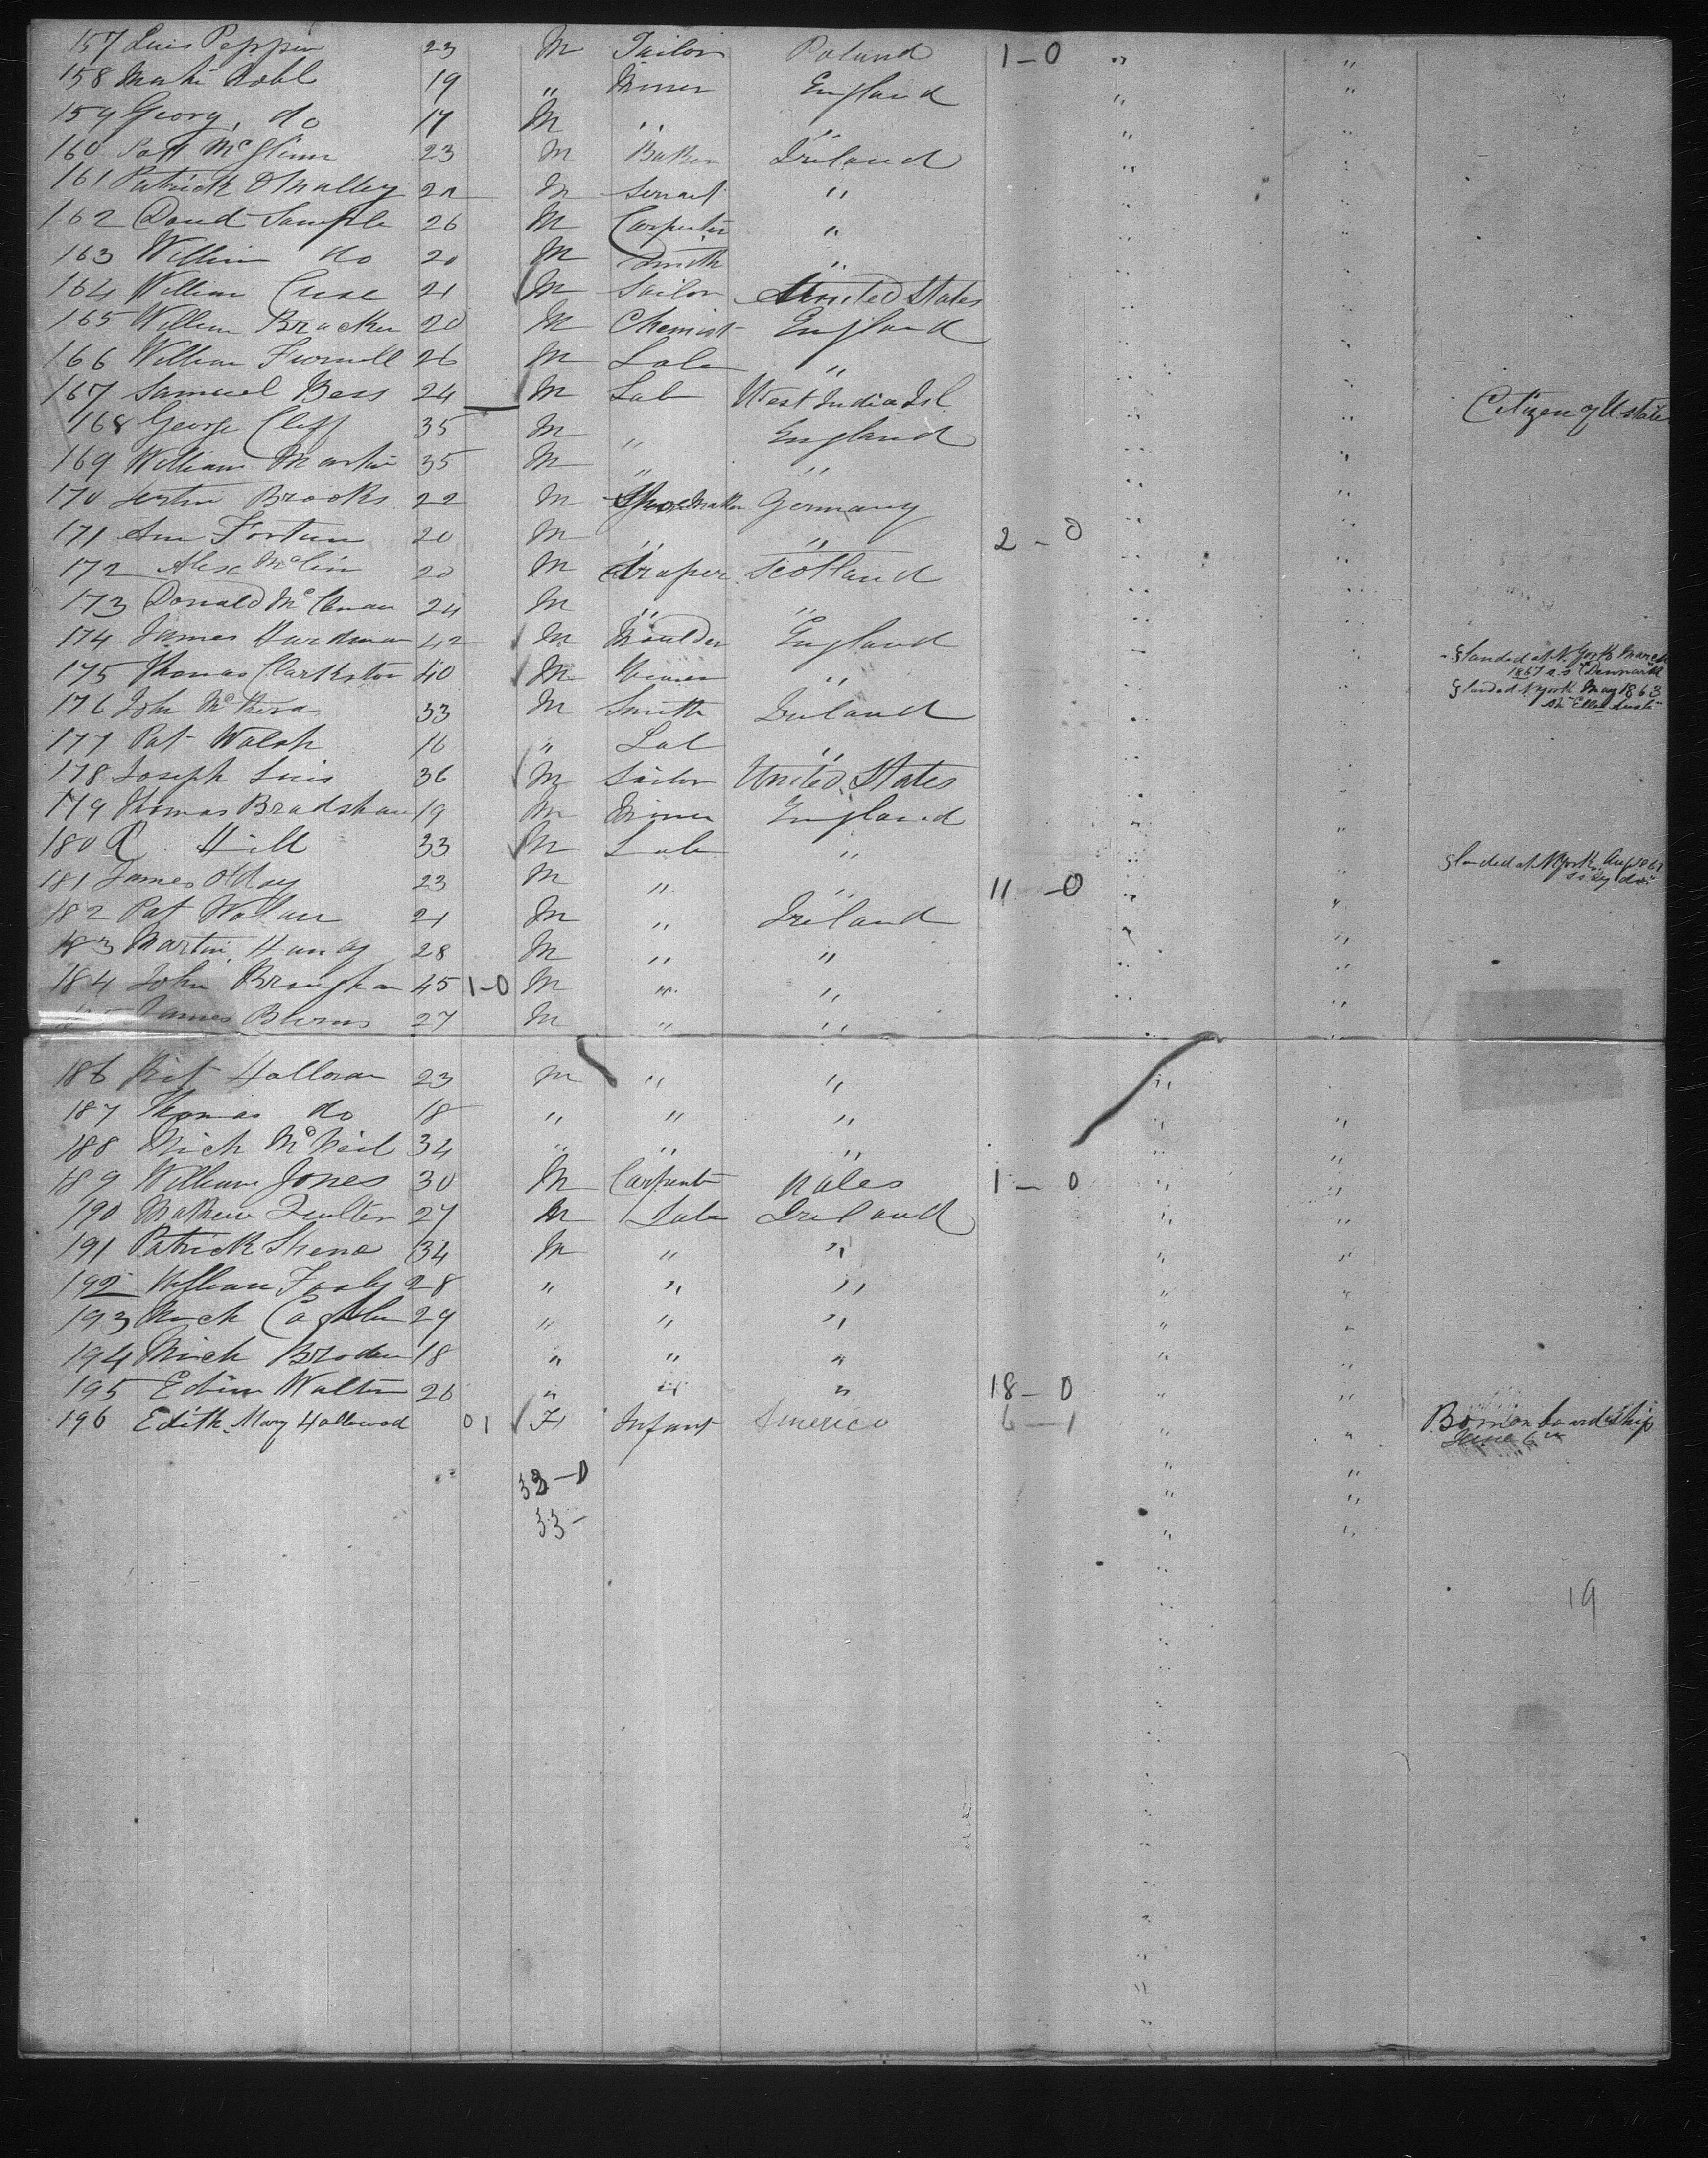 157 Luis Peppin 23 M Tailor Poland 1-0 " "
158 Noble 19 " Miner England " "
159 Georg, do 17 M " " " "
160 Patt McGlinn 23 M Baker Ireland " "
161 Patrick OMalley M Servant " " "
162 David Sample 26 M Carpenter " " "
163 William do 20 M Smith " " "
164 William 21 M Sailor United States " "
165 William Bracken 20 M Chemist England " "
166 William 26 M Lab " " "
167 Samuel Bess 24 M Lab West India Isl " " Citizen of U state
168 George Cleff 35 M " England " "
169 William Martin 35 M " " " "
170 Brooks 22 M Shoemaker Germany " "
171 Fortun 20 M " " 2-0 " "
172 Alex McLin 20 M draper Scotland " "
173 Donald Mc 24 M " " " "
174 James Hardman 42 M Moulder England " " landed at N. York March
175 Thomas Clarkston 40 M " " " 1857 s.s "Denmark"
176 John Mc 33 M Smith Ireland " " landed N York May 1863
177 Pat Walsh 16 " Lab " " "
178 Joseph Luis 36 M Sailor United States " "
179 Thomas Bradshaw 19 M Miner England " "
180 R Hill 33 M Lab " " " landed at N York
181 James Oday 23 M " " 11-0 " "
182 Pat Nolan 21 M " Ireland " "
183 Martin Handy 28 M " " " "
184 John Brougham 45 1-0 M " " " "
James Burns 27 M " " " "
186 Halloran 23 M " " "
187 Thomas do 18 " " " " "
188 Mich McNeil 34 " " " " "
189 William Jones 30 M Carpenter Wales 1-0 " "
190 Mathew 27 M Lab Ireland " "
191 Patrick 34 M " " " "
192 William 28 " " " " "
193 Mich 29 " " " " "
194 Mich Broden 18 " " " " "
195 Edwin Walton 26 " " " 18-0 " "
196 Edith Mary Hallowood 01 F Infant America 6-1 " " Born on board Ship
June 6th
33-0 " "
33- " "
19